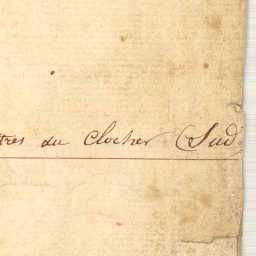 tres du Clocher (Sud